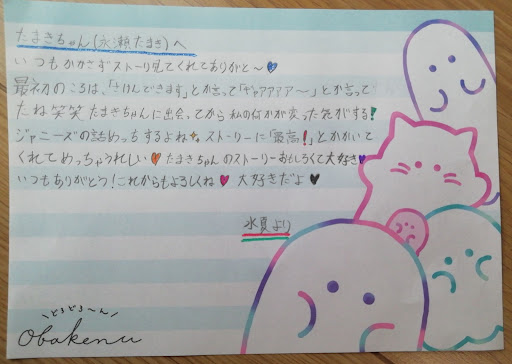 たまきちゃん(永瀬たまき)へ
いつもかかさずストーリ見てくれてありがと〜
最初のころは、「さけんできます」とか言って「ギャアアアア〜」とか言って
たね笑笑 たまきちゃんに出会ってから 私の何かが変った気がする!
ジャニーズの話めっちするよね ストーリーに「最高!」とかかいて
くれてめっちゃうれしい たまきちゃんのストーリーおもしろくて大好き
いつもありがとう!これからもよろしくね 大好きだよ
氷夏より
\どろどろ〜ん/
obakenu